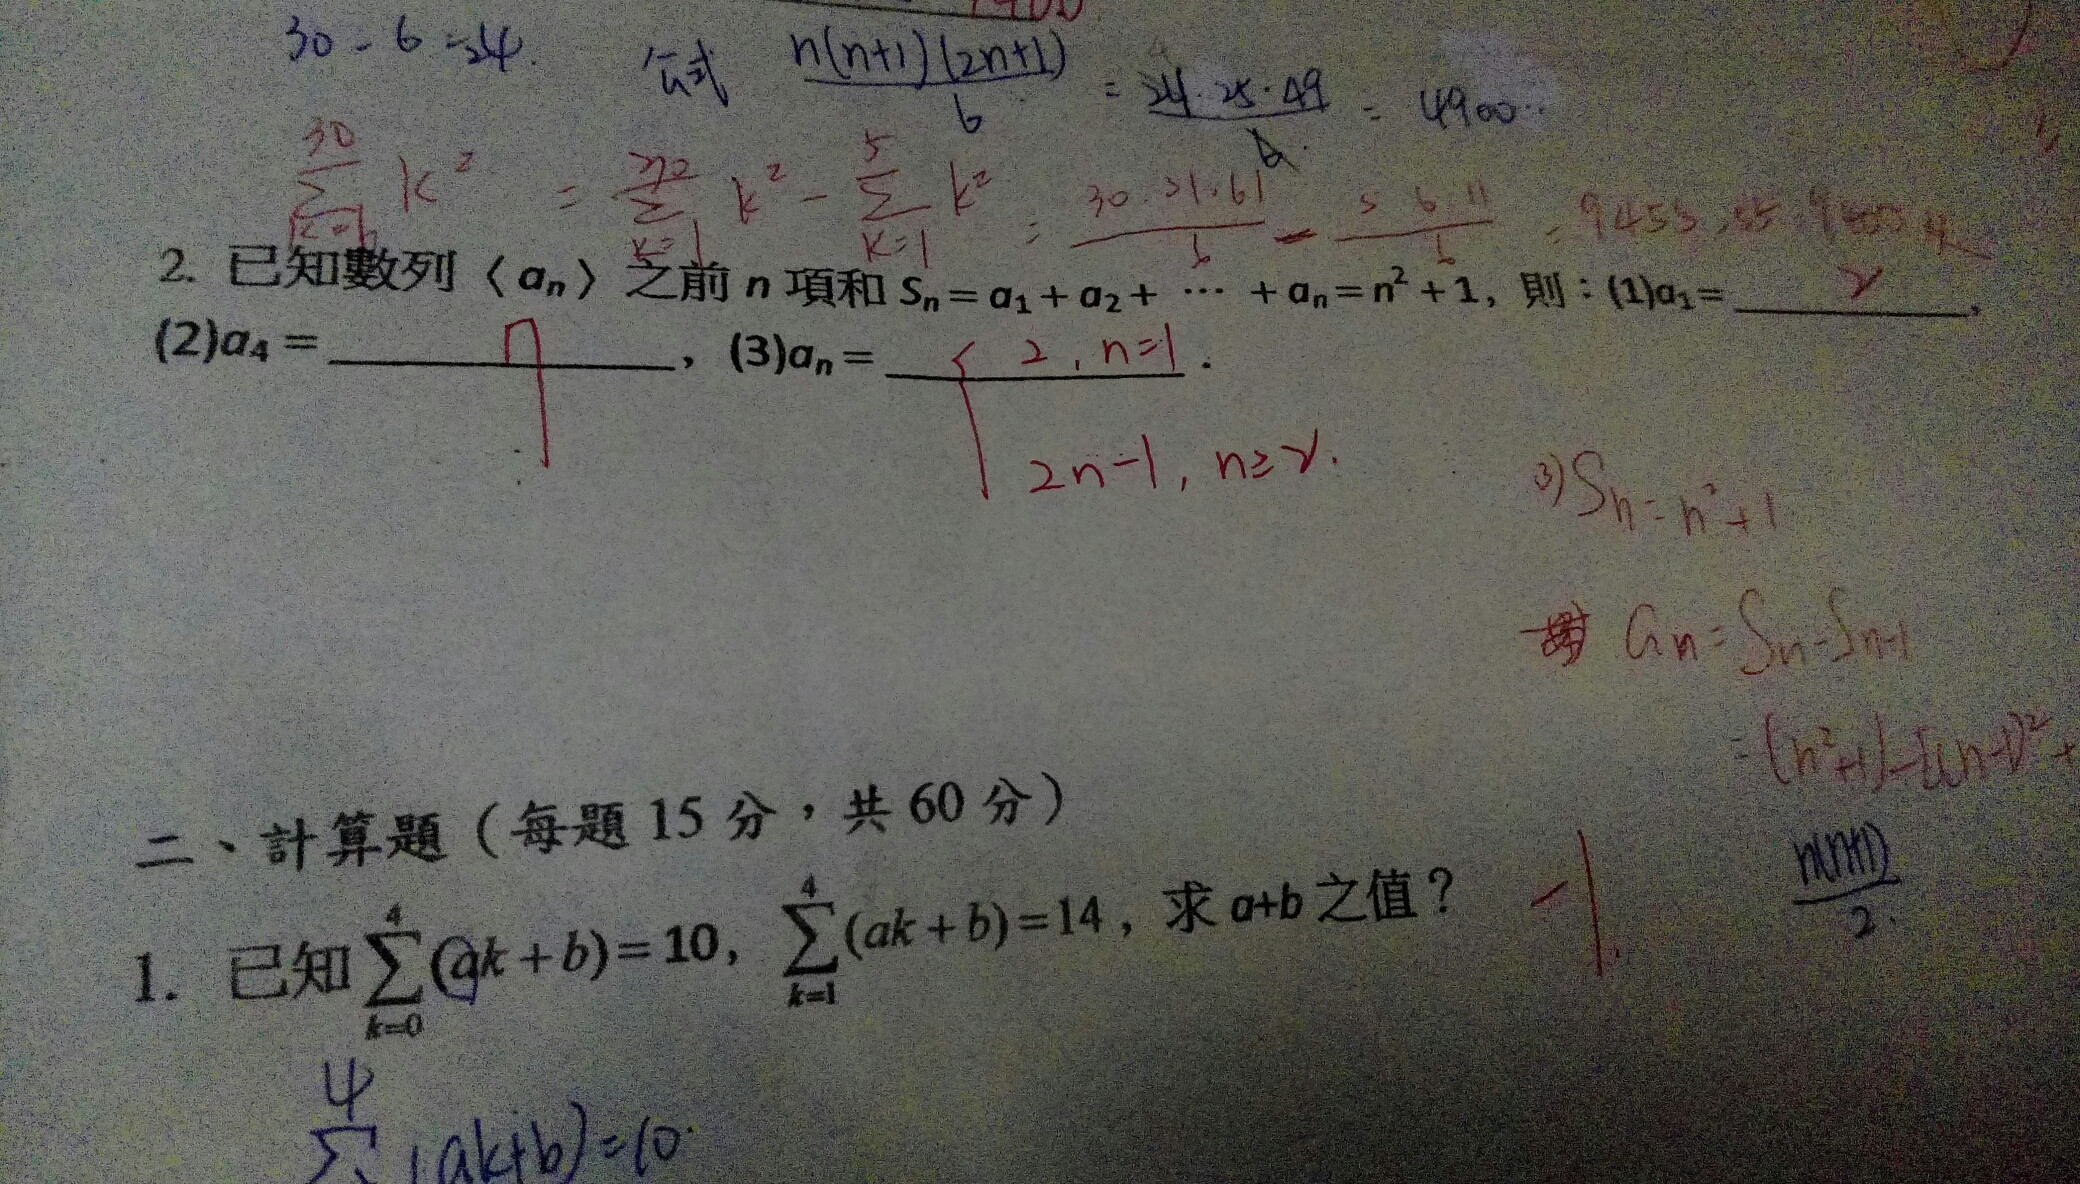 30 - 6 = 24. 公式 n(n+1)(2n+1)/6 = 24·25·49/6 = 4900
30 Σ k=6 k² = 30 Σ k=1 k² - 5 Σ k=1 k² = 30·31·61/6 - 5·6·11/6 = 9455
2. 已知數列〈aₙ〉之前 n 項和 Sₙ = a₁ + a₂ + ⋯ + aₙ = n² + 1, 則：(1)a₁ = 2,
(2)a₄ = 7, (3)aₙ = { 2, n=1.
2n-1, n≥2.
3) Sₙ = n² + 1
aₙ = Sₙ - Sₙ₋₁
= (n²+1) - [(n-1)² +
二、計算題（每題 15 分，共 60 分）
n(n+1)/2.
1. 已知 4 Σ k=0 (ak + b) = 10, 4 Σ k=1 (ak + b) = 14, 求 a+b 之值？ -1.
4 Σ (ak+b) = 10.